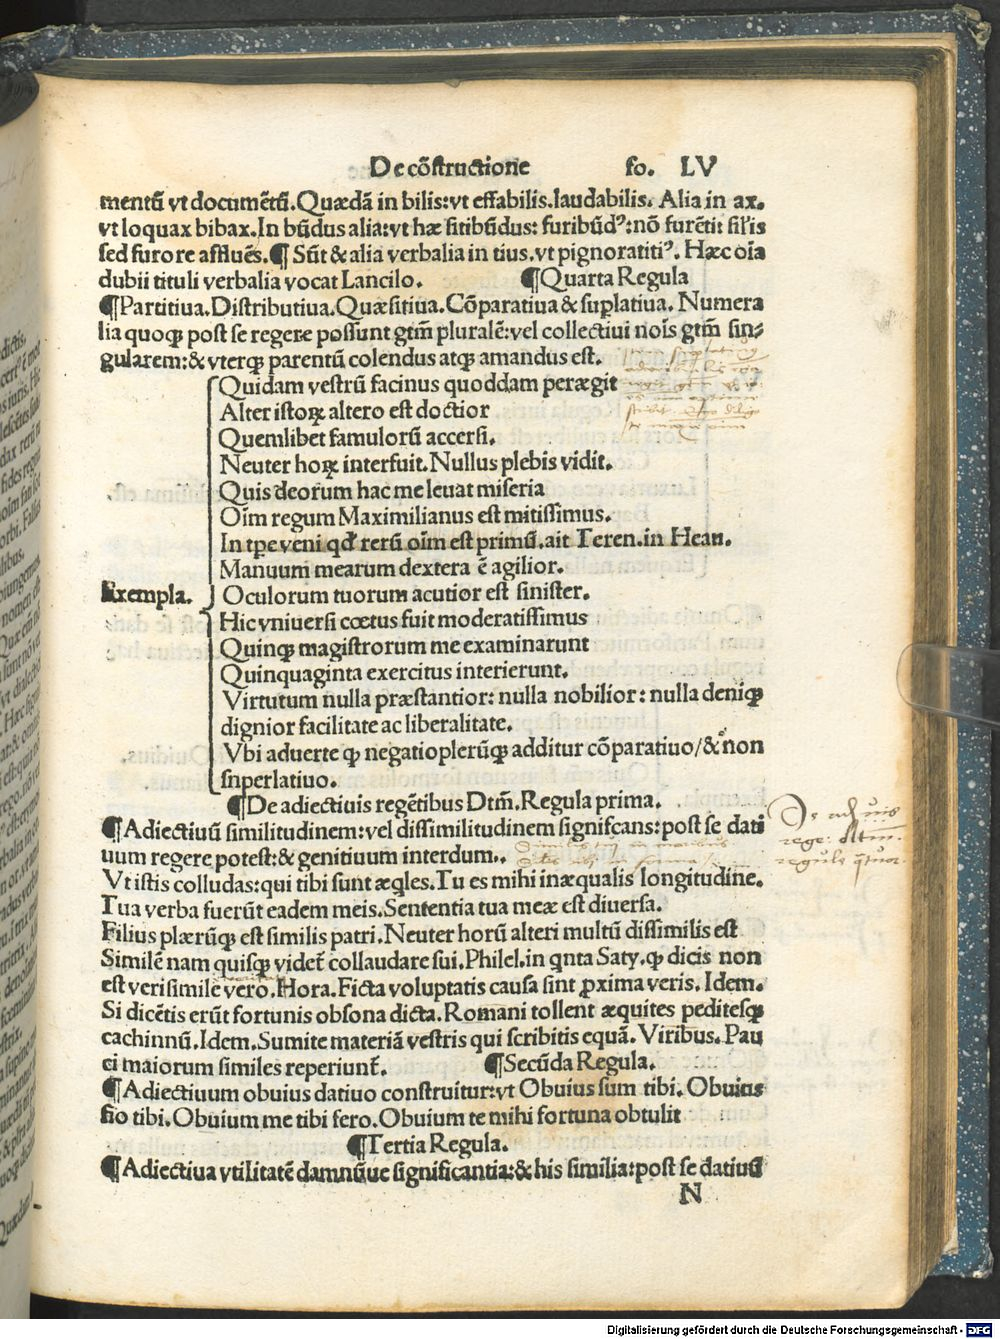 De cõstructione fo. LV
mentũ vt documẽtũ. Quædã in bilis: vt effabilis. laudabilis. Alia in ax.
vt loquax bibax. In bũdus alia: vt hæ sitibũdus: furibũdꝰ: nõ furẽti: sil'is
sed furore afflués. ¶ Sũt & alia verbalia in tius. vt pignoratitiꝰ. Hæc oĩa
dubii tituli verbalia vocat Lancilo. ¶ Quarta Regula
¶ Partitiua. Distributiua. Quæsitiua. Cõparatiua & suꝑlatiua. Numera
lia quoqꝫ post se regere possunt gtm̃ pluralẽ: vel collectiui nois̃ gtm̃ sin⸗
gularem: & vterqꝫ parentũ colendus atqꝫ amandus est.
Quidam vestrũ facinus quoddam peræegit
Alter istoꝝ altero est doctior
Quemlibet famulorũ accersi.
Neuter hoꝝ interfuit. Nullus plebis vidit.
Quis deorum hac me leuat miseria
Oim̃ regum Maximilianus est mitissimus.
In tꝑe veni qđ rerũ oim̃ est primũ. ait Teren. in Heau.
Manuum mearum dextera ẽ agilior.
Exempla. Oculorum tuorum acutior est sinister.
Hic vniuersi cœtus fuit moderatissimus
Quinqꝫ magistrorum me examinarunt
Quinquaginta exercitus interierunt.
Virtutum nulla præstantior: nulla nobilior: nulla deniqꝫ
dignior facilitate ac liberalitate.
Vbi aduerte ꝙ negatio plerũqꝫ additur cõparatiuo/ & non
snperlatiuo.
¶ De adiectiuis regẽtibus Dtm̃. Regula prima.
¶ Adiectiuũ similitudinem: vel dissimilitudinem signifcans: post se dati
uum regere potest: & genitiuum interdum.
Vt istis colludas: qui tibi sunt æq̃les. Tu es mihi inæqualis longitudine.
Tua verba fuerũt eadem meis. Sententia tua meæ est diuersa.
Filius plærũqꝫ est similis patri. Neuter horũ alteri multũ dissimilis est
Similẽ nam quisqꝫ videt̃ collaudare sui. Philel. in qnta Saty. ꝙ dicis non
est verisimile vero. Hora. Ficta voluptatis causa sint ꝓxima veris. Idem.
Si dicẽtis erũt fortunis obsona dicta. Romani tollent æquites peditesqꝫ
cachinnũ. Idem. Sumite materiã vestris qui scribitis equã. Viribus. Pau
ci maiorum similes reperiunt̃. ¶ Secũda Regula.
¶ Adiectiuum obuius datiuo construitur: vt Obuius sum tibi. Obuius
fio tibi. Obuium me tibi fero. Obuium te mihi fortuna obtulit
¶ Tertia Regula.
¶ Adiectiua vtilitatẽ damnũue significantia: & his similia: post se datiuũ
N
De adiuis
rege. dtm.
regule qtuor.
Digitalisierung gefördert durch die Deutsche Forschungsgemeinschaft - DFG